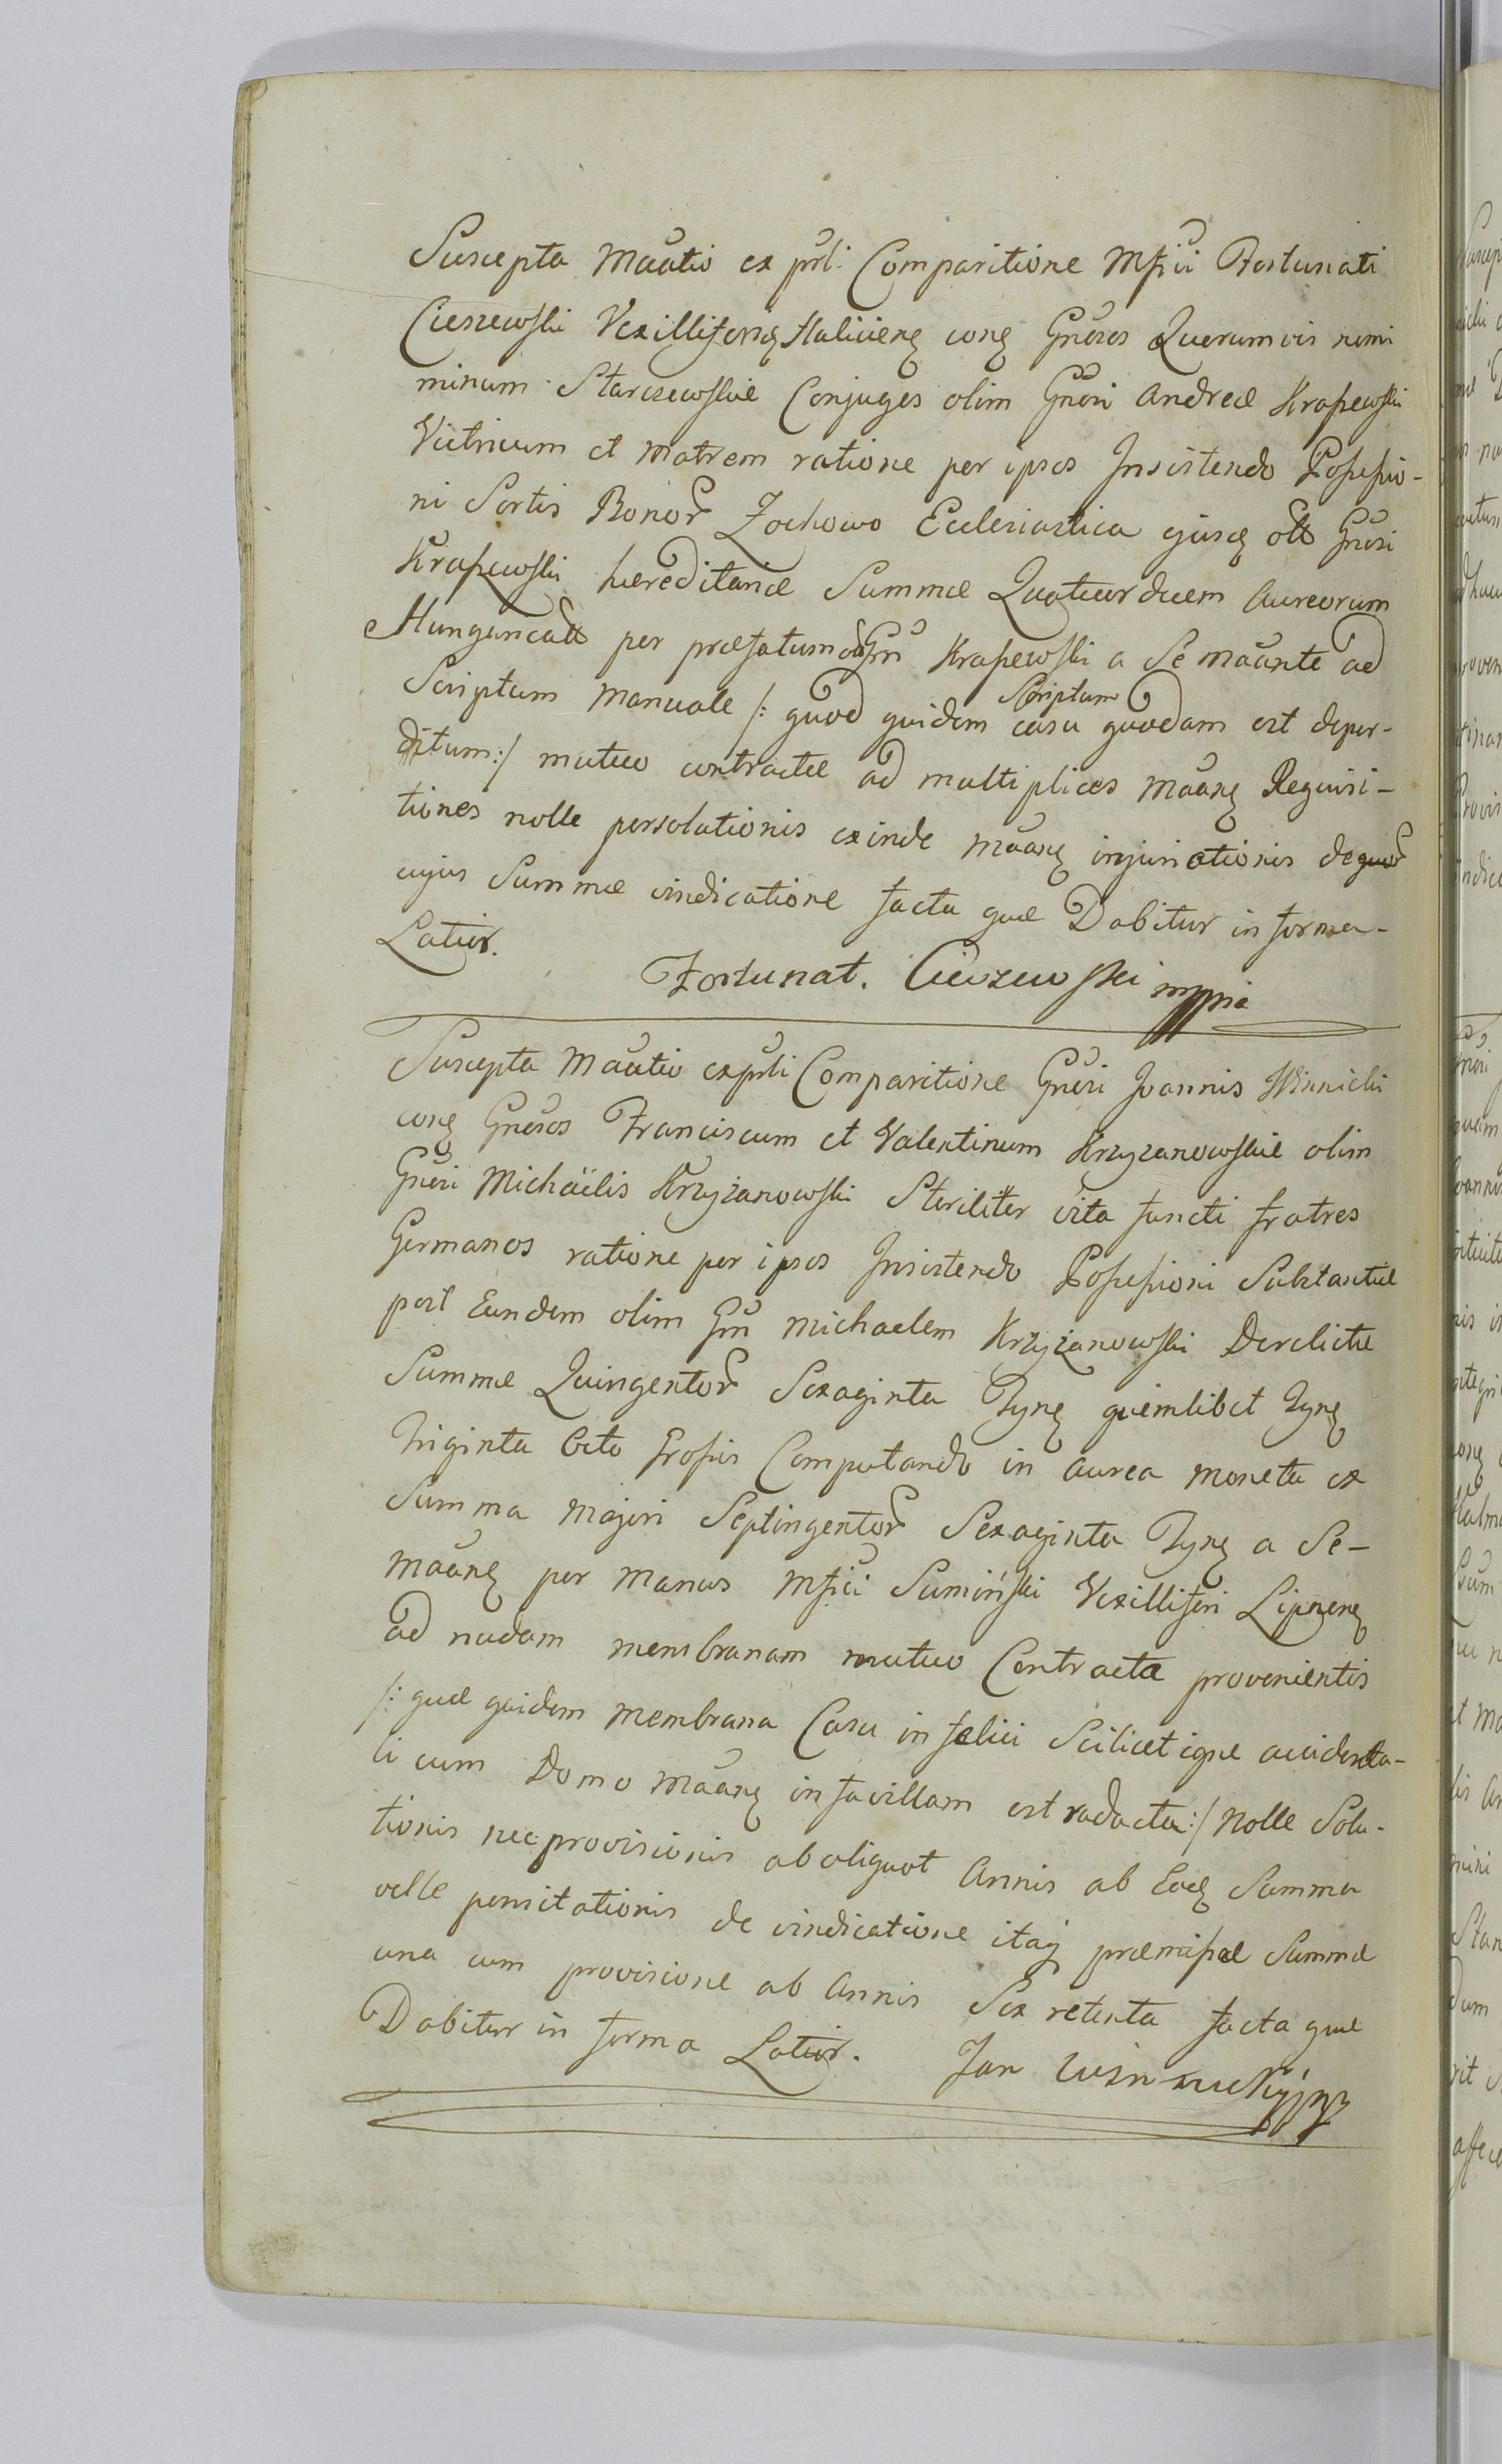 Suscepta Mãatio ex prli Comparitione Mfici Fortunati
Cieszewski Vexilliferis Haliciens cons Gnosos Querumvis nomi
minum Starczewskie Conjuges olim Gnosi Andreæ Krajewski
Vitricum et Matrem ratione per ipsos Insistendo Possessio-
ni Sortis Bonor Zochowo Ecclesiastica ejusq olim Gnosi
Krajewski hæreditariæ Summæ Quatuordecem Aureorum
Hungaricali per præfatum olim Gnm Krajewski a Se mãante ad
Scriptum Manuale /: quod quidem Scriptum casu quodam est deper-
ditum :/ mutuo contractæ ad multiplices mãans Requisi-
tiones nolle persolutionis exinde mãans injuriationis dequor
cujus Summæ vindicatione facta quæ Dabitur in forma
Latior.
Fortunat. Cieszewski mppria
Suscepta Mãatio ex prli Comparitione Gnosi Joannis Winnicki
cons Gnosos Franciscum et Valentinum Krzyżanowskie olim
Gnosi Michäelis Krzyżanowski Steriliter vita functi fratres
Germanos ratione per ipsos Insistendo Possessioni Substantiæ
post Eundem olim Gnm Michaelem Krzyżanowski Derelictæ
Summæ Quingentor Sexaginta Tyns quemlibet Tyns
Triginta Octo Grossis Computando in Aurea Moneta ex
Summa Majori Septingentor Sexaginta Tyns a Se-
mãans per Manus Mfici Sumiński Vexilliferi Lipnens
ad nudam membranam mutuo Contracta provenientis
/: quæ quidem Membrana Casu in felici Scilicet igne accidenta-
li cum Domo mãans in favillam est radacta :/ Nolle Solu-
tionis nec provisionis ab aliquot Annis ab Eadq Summa
velle pensitationis de vindicatione itaq præmissæ Summæ
una cum provisione ab Annis Sex retenta facta quæ
Dabitur in forma Latior. Jan Winnicki